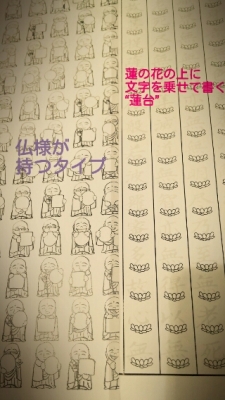 蓮の花の上に
文字を乗せて書く
"蓮台"
仏様が
持つタイプ